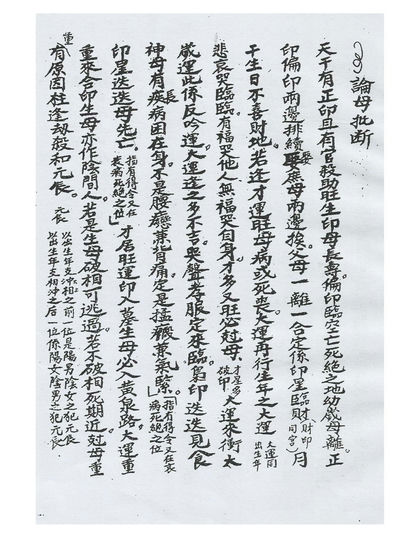 論母批断
天干有正印且有官殺助旺生印母長壽。偏印臨空亡死絕之地幼歲母離。正
印偏印兩邊排續娶庶母兩邊挨。父母一離一合定係印星臨財(財印同宮)月
干生日不喜財地。若逢才運旺母病或死喪。大運再行生年之大運(大運同出生年)
悲哀哭臨臨。有福哭他人無福哭自身。才多又旺必尅母。(才星多破印)大運來衝太
歲運此係反吟運大運逢之多不吉哭聲孝服定來臨。梟印迭迭見食
神母有疾病困在身。不是腰癰兼背痛定是氣緊。(指有得令又在衰病死絕之位)
印星迭迭母先亡。(指有得令又在衰病死絕之位)才居旺運印入墓生母必入黃泉路大運重
重來合印生母亦作陰間人。若是生母破相可逃過。若不破相死期近尅母重
重有原因柱逢劫殺和元辰。元辰 以出生年支相冲之前一位是陽男陰女之犯元辰 以出生年支相冲之后一位係陽女陰男之犯元辰